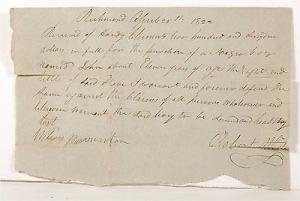 Richmond April 25th 182
Received of Hardy Clement two hundred and sixteen
dollars in full for the purchase of a Negro boy
named John about Eleven years of age the right and
title of said slave I warrant and forever defend the
same against the claims of all persons whosoever and
likewise warrant the said boy to be sound and healthy
Robert